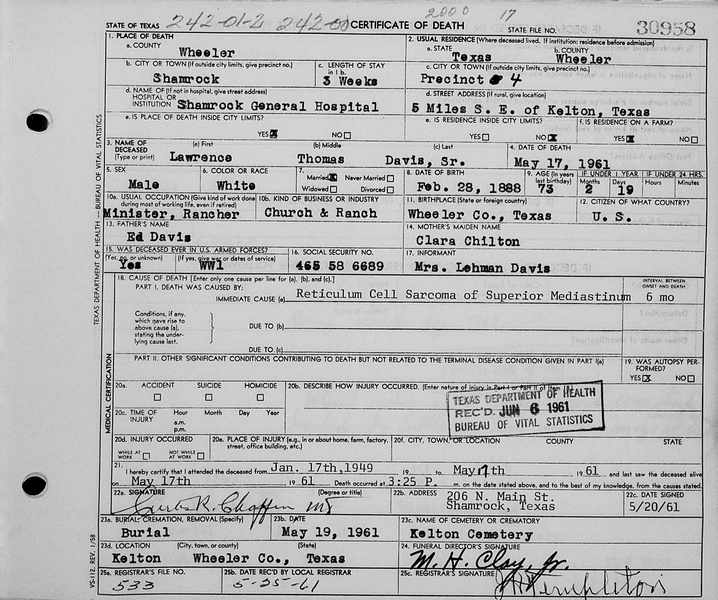 242-01-2 242-00 2000 17
STATE OF TEXAS CERTIFICATE OF DEATH STATE FILE NO. 30958
1. PLACE OF DEATH
a. COUNTY
Wheeler
2. USUAL RESIDENCE (Where deceased lived. If institution: residence before admission)
a. STATE b. COUNTY
Texas Wheeler
b. CITY OR TOWN (If outside city limits, give precinct no.) c. LENGTH OF STAY in 1 b.
Shamrock 3 Weeks
c. CITY OR TOWN (If outside city limits, give precinct no.)
Precinct 4
d. NAME OF (If not in hospital, give street address)
HOSPITAL OR
INSTITUTION Shamrock General Hospital
d. STREET ADDRESS (If rural, give location)
5 Miles S. E. of Kelton, Texas
e. IS PLACE OF DEATH INSIDE CITY LIMITS?
YES NO
e. IS RESIDENCE INSIDE CITY LIMITS? f. IS RESIDENCE ON A FARM?
YES NO YES NO
3. NAME OF DECEASED (Type or print) (a) First (b) Middle (c) Last
Lawrence Thomas Davis, Sr.
4. DATE OF DEATH
May 17, 1961
5. SEX 6. COLOR OR RACE 7. Married Never Married
Male White Widowed Divorced
8. DATE OF BIRTH 9. AGE (In years last birthday) IF UNDER 1 YEAR IF UNDER 24 HRS.
Months Days Hours Minutes
Feb. 28, 1888 73 2 19
10a. USUAL OCCUPATION (Give kind of work done during most of working life, even if retired)
Minister, Rancher
10b. KIND OF BUSINESS OR INDUSTRY
Church & Ranch
11. BIRTHPLACE (State or foreign country)
Wheeler Co., Texas
12. CITIZEN OF WHAT COUNTRY?
U. S.
13. FATHER'S NAME
Ed Davis
14. MOTHER'S MAIDEN NAME
Clara Chilton
15. WAS DECEASED EVER IN U.S. ARMED FORCES?
(Yes, no, or unknown) (If yes, give war or dates of service)
Yes WW1
16. SOCIAL SECURITY NO.
465 58 6689
17. INFORMANT
Mrs. Lehman Davis
18. CAUSE OF DEATH [Enter only one cause per line for (a), (b), and (c).]
PART I. DEATH WAS CAUSED BY:
INTERVAL BETWEEN ONSET AND DEATH
IMMEDIATE CAUSE (a) Reticulum Cell Sarcoma of Superior Mediastinum 6 mo
Conditions, if any,
which gave rise to
above cause (a),
stating the under-
lying cause last.
DUE TO (b)
DUE TO (c)
PART II. OTHER SIGNIFICANT CONDITIONS CONTRIBUTING TO DEATH BUT NOT RELATED TO THE TERMINAL DISEASE CONDITION GIVEN IN PART I(a)
19. WAS AUTOPSY PERFORMED?
YES NO
MEDICAL CERTIFICATION
20a. ACCIDENT SUICIDE HOMICIDE
20b. DESCRIBE HOW INJURY OCCURRED. (Enter nature of injury in Part I or Part II of item 18.)
TEXAS DEPARTMENT OF HEALTH
REC'D JUN 6 1961
BUREAU OF VITAL STATISTICS
20c. TIME OF INJURY Hour Month Day Year
a.m.
p.m.
20d. INJURY OCCURRED
WHILE AT WORK NOT WHILE AT WORK
20e. PLACE OF INJURY (e.g., in or about home, farm, factory, street, office building, etc.)
20f. CITY, TOWN, OR LOCATION COUNTY STATE
21. I hereby certify that I attended the deceased from Jan. 17th, 1949 19 to May 17th 19 61 and last saw the deceased alive
on May 17th 19 61 Death occurred at 3:25 P. m. on the date stated above, and to the best of my knowledge, from the causes stated.
22a. SIGNATURE (Degree or title)
Curtis R. Chaffin MD
22b. ADDRESS
206 N. Main St.
Shamrock, Texas
22c. DATE SIGNED
5/20/61
23a. BURIAL, CREMATION, REMOVAL (Specify)
Burial
23b. DATE
May 19, 1961
23c. NAME OF CEMETERY OR CREMATORY
Kelton Cemetery
23d. LOCATION (City, town, or county) (State)
Kelton Wheeler Co., Texas
24. FUNERAL DIRECTOR'S SIGNATURE
M. H. Clay, Jr.
25a. REGISTRAR'S FILE NO.
533
25b. DATE REC'D BY LOCAL REGISTRAR
5-25-61
25c. REGISTRAR'S SIGNATURE
Templeton
VS-112, REV. 1/58
TEXAS DEPARTMENT OF HEALTH—BUREAU OF VITAL STATISTICS